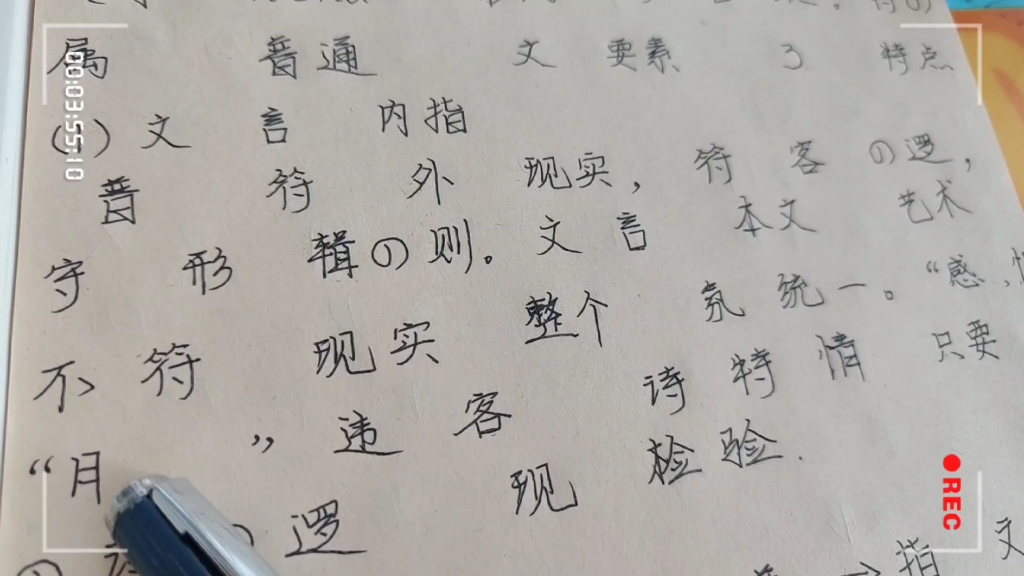 属 普通 文 要素 3 特点
(1) 文 言 内指
普 符 外 现实, 符 客 の逻,
守 形 辑の则。文 言 本文 艺术
不 符 现实 整个 氛 统一。“感,
“月 ” 违 客 诗 特 情 只要
逻 现 检验.
指 文
00:03:55:10
REC